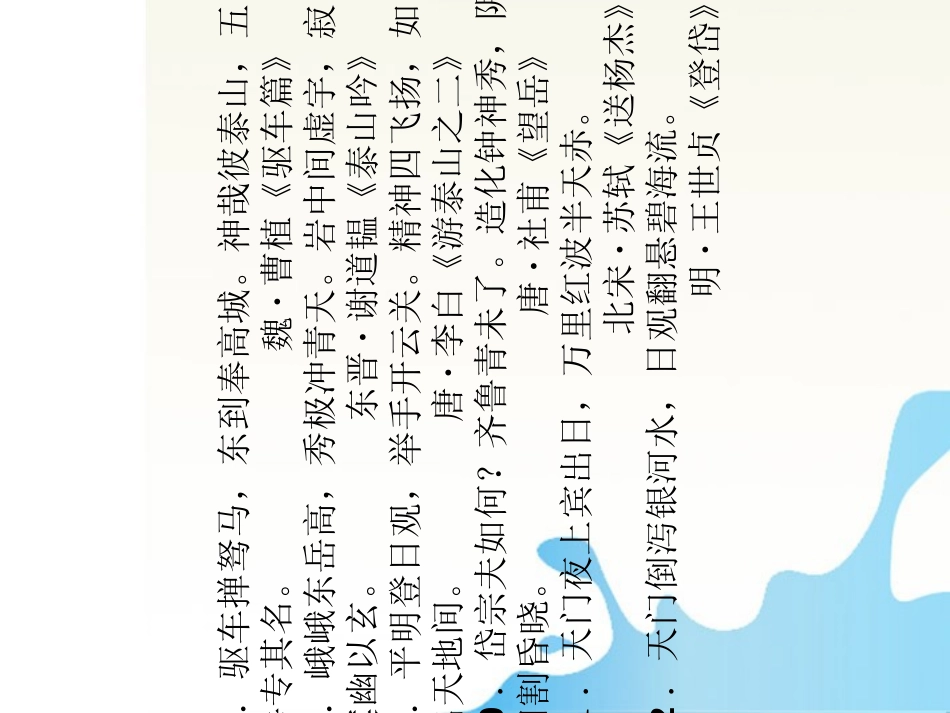 驱车掸驽马，东到奉高城。神哉彼泰山，五
专其名。
魏·曹植《驱车篇》
峨峨东岳高，秀极冲青天。岩中间虚宇，寂
幽以玄。
东晋·谢道韫《泰山吟》
平明登日观，举手开云关。精神四飞扬，如
天地间。
唐·李白《游泰山之二》
岱宗夫如何？齐鲁青未了。造化钟神秀，阴
割昏晓。
唐·杜甫《望岳》
天门夜上宾出日，万里红波半天赤。
北宋·苏轼《送杨杰》
天门倒泻银河水，日观翻悬碧海流。
明·王世贞《登岱》